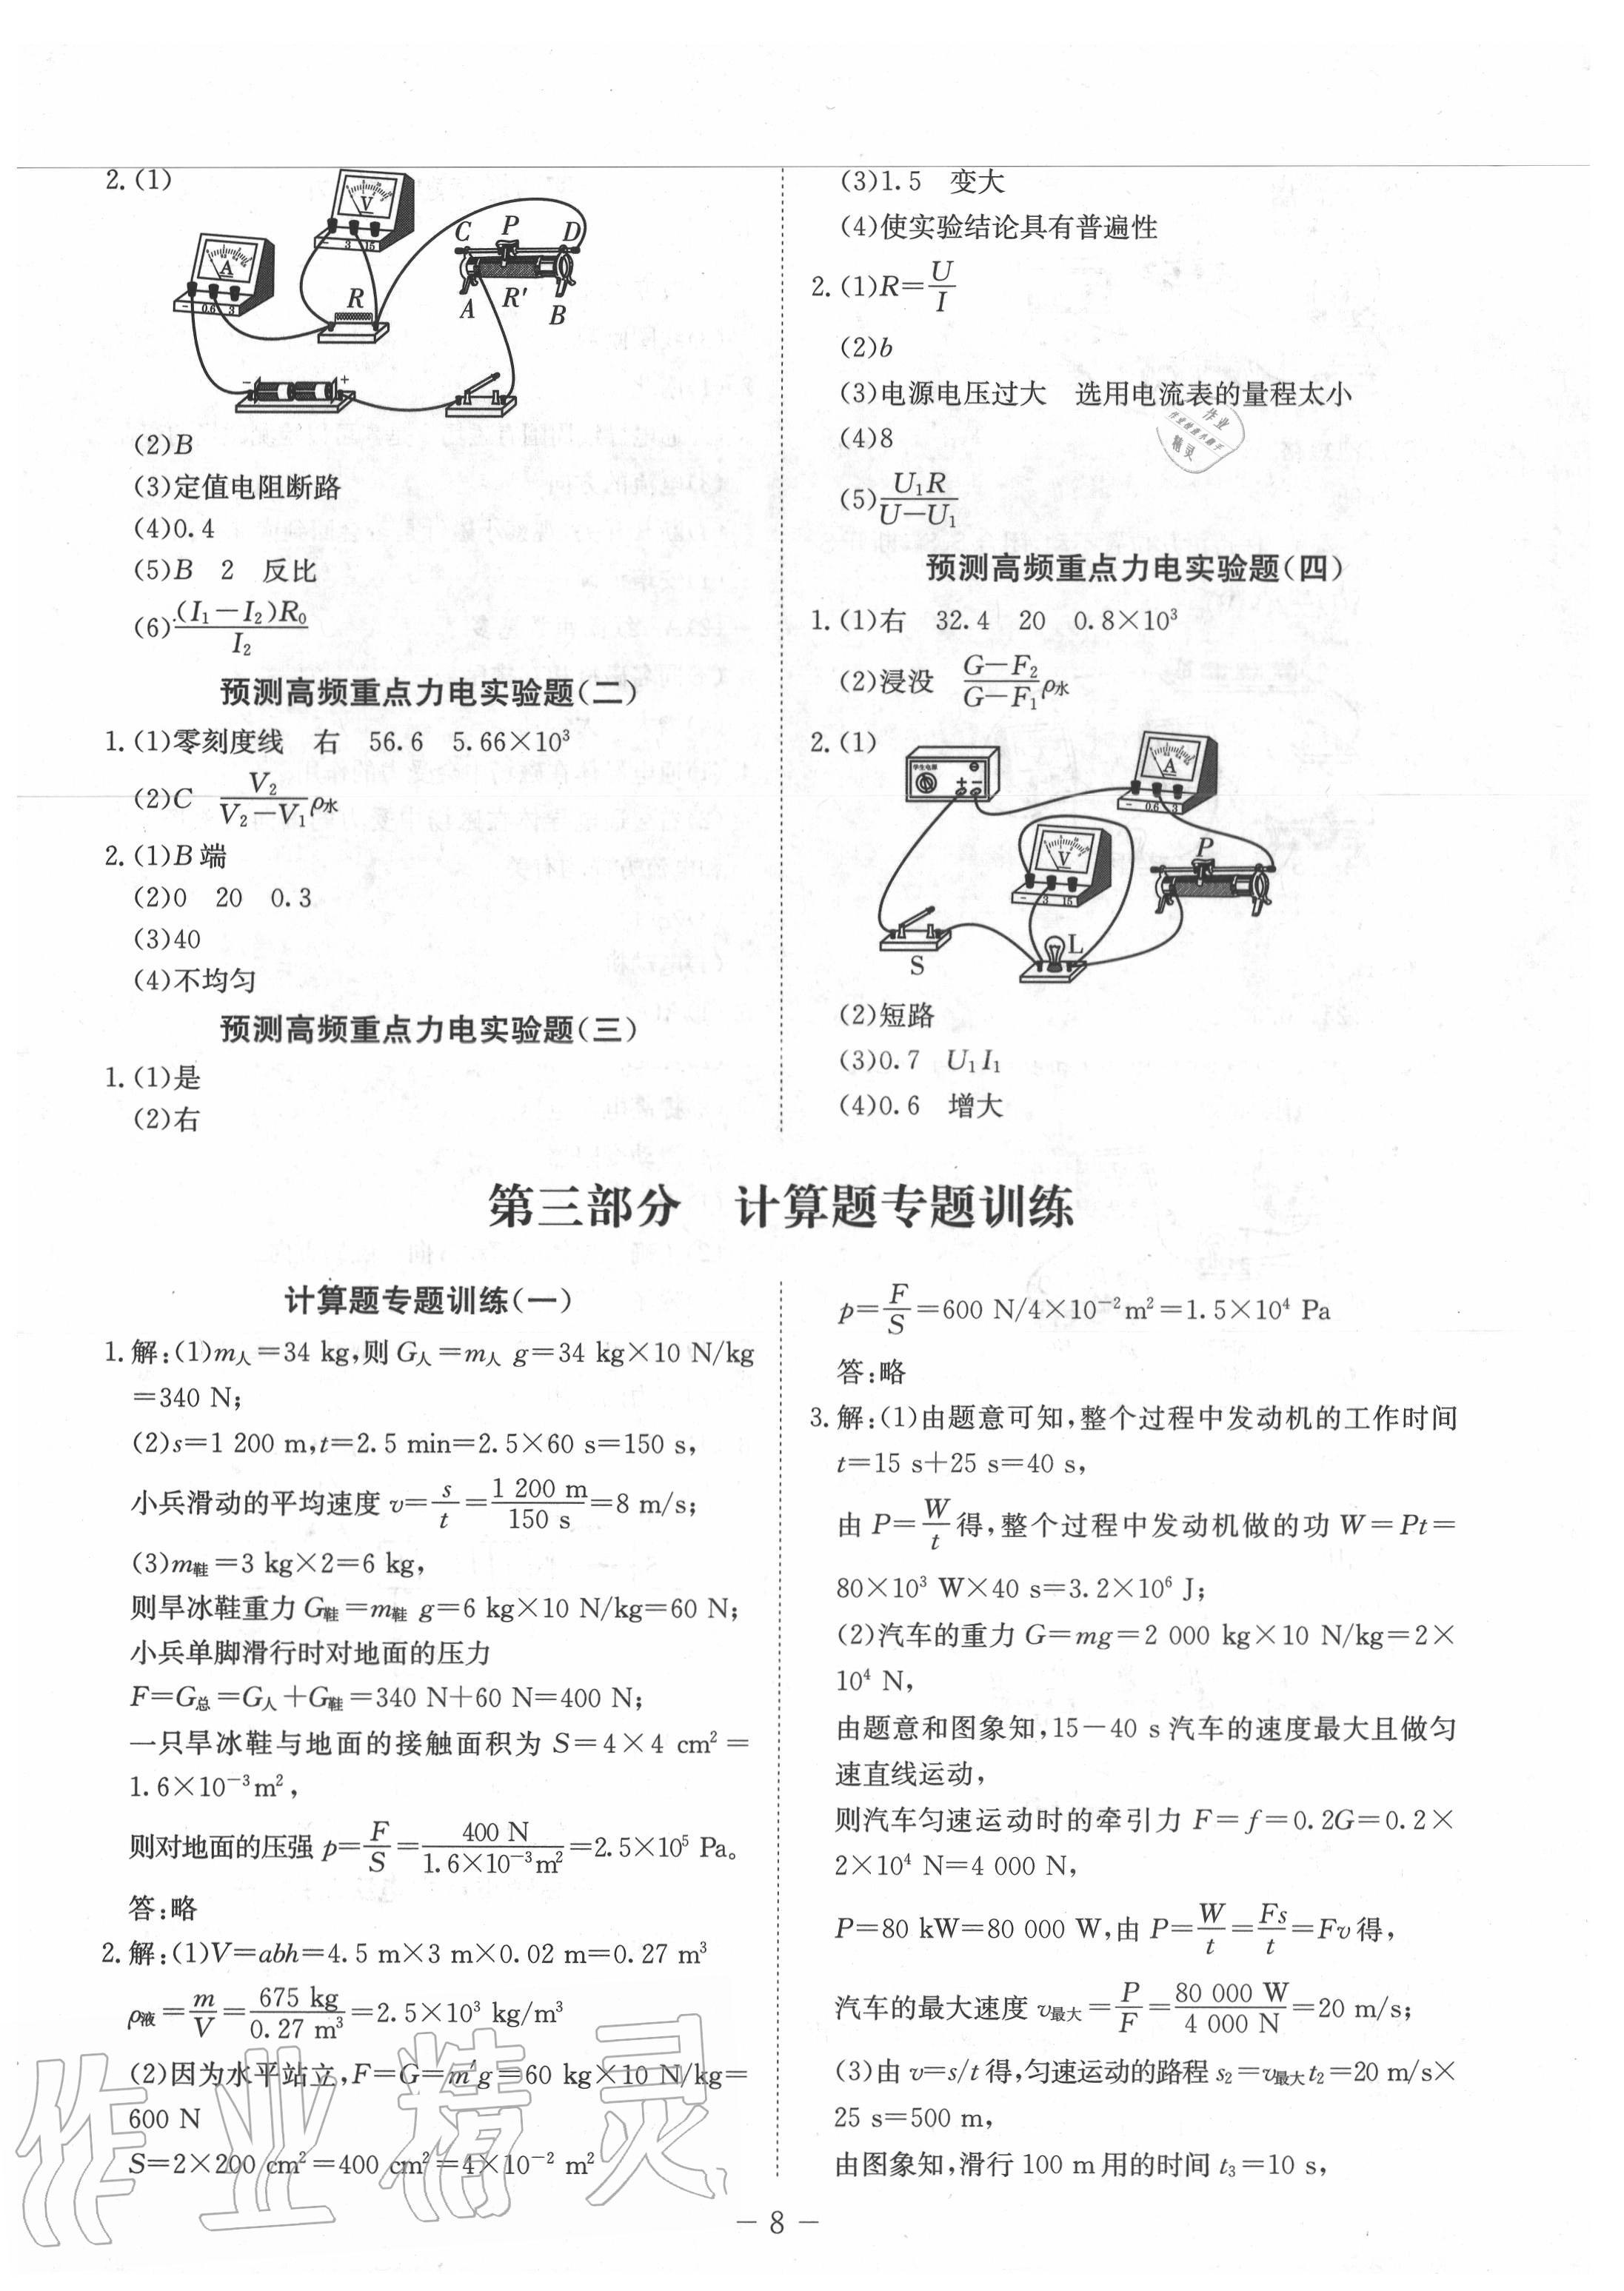 2.(1)
V
- 3 15
A
- 0.6 3
R
C P D
A R' B
- +
(2)B
(3)定值电阻断路
(4)0.4
(5)B 2 反比
(6)(I₁-I₂)R₀/I₂
预测高频重点力电实验题(二)
1.(1)零刻度线 右 56.6 5.66×10³
(2)C V₂/(V₂-V₁)ρ水
2.(1)B端
(2)0 20 0.3
(3)40
(4)不均匀
预测高频重点力电实验题(三)
1.(1)是
(2)右
(3)1.5 变大
(4)使实验结论具有普遍性
2.(1)R=U/I
(2)b
(3)电源电压过大 选用电流表的量程太小
(4)8
(5)U₁R/(U-U₁)
预测高频重点力电实验题(四)
1.(1)右 32.4 20 0.8×10³
(2)浸没 (G-F₂)/(G-F₁)ρ水
2.(1)
学生电源
+ -
A
- 0.6 3
V
- 3 15
P
S
L
(2)短路
(3)0.7 U₁I₁
(4)0.6 增大
第三部分 计算题专题训练
计算题专题训练(一)
1.解:(1)m人=34 kg,则G人=m人 g=34 kg×10 N/kg
=340 N;
(2)s=1 200 m,t=2.5 min=2.5×60 s=150 s,
小兵滑动的平均速度 v=s/t=1 200 m/150 s=8 m/s;
(3)m鞋=3 kg×2=6 kg,
则旱冰鞋重力G鞋=m鞋 g=6 kg×10 N/kg=60 N;
小兵单脚滑行时对地面的压力
F=G总=G人+G鞋=340 N+60 N=400 N;
一只旱冰鞋与地面的接触面积为 S=4×4 cm²=
1.6×10⁻³m²,
则对地面的压强 p=F/S=400 N/1.6×10⁻³m²=2.5×10⁵ Pa。
答:略
2.解:(1)V=abh=4.5 m×3 m×0.02 m=0.27 m³
ρ液=m/V=675 kg/0.27 m³=2.5×10³ kg/m³
(2)因为水平站立,F=G=m′g=60 kg×10 N/kg=
600 N
S=2×200 cm²=400 cm²=4×10⁻² m²
p=F/S=600 N/4×10⁻²m²=1.5×10⁴ Pa
答:略
3.解:(1)由题意可知,整个过程中发动机的工作时间
t=15 s+25 s=40 s,
由 P=W/t得,整个过程中发动机做的功 W=Pt=
80×10³ W×40 s=3.2×10⁶ J;
(2)汽车的重力 G=mg=2 000 kg×10 N/kg=2×
10⁴ N,
由题意和图象知,15-40 s汽车的速度最大且做匀
速直线运动,
则汽车匀速运动时的牵引力 F=f=0.2G=0.2×
2×10⁴ N=4 000 N,
P=80 kW=80 000 W,由 P=W/t=Fs/t=Fv得,
汽车的最大速度 v最大=P/F=80 000 W/4 000 N=20 m/s;
(3)由 v=s/t得,匀速运动的路程 s₂=v最大t₂=20 m/s×
25 s=500 m,
由图象知,滑行100 m用的时间 t₃=10 s,
作业精灵
- 8 -